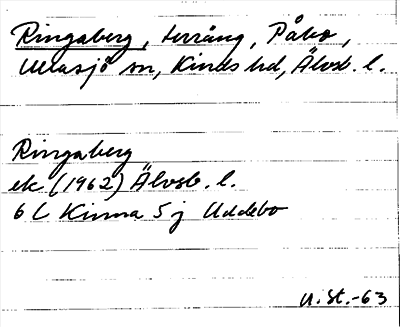 Ringaberg, terräng, Påbo,
Ullasjö sn, Kinds hd, Älvsb. l.
Ringaberg
ek (1962) Älvsb. l.
6 C Kinna 5 j Uddebo
U. St. -63